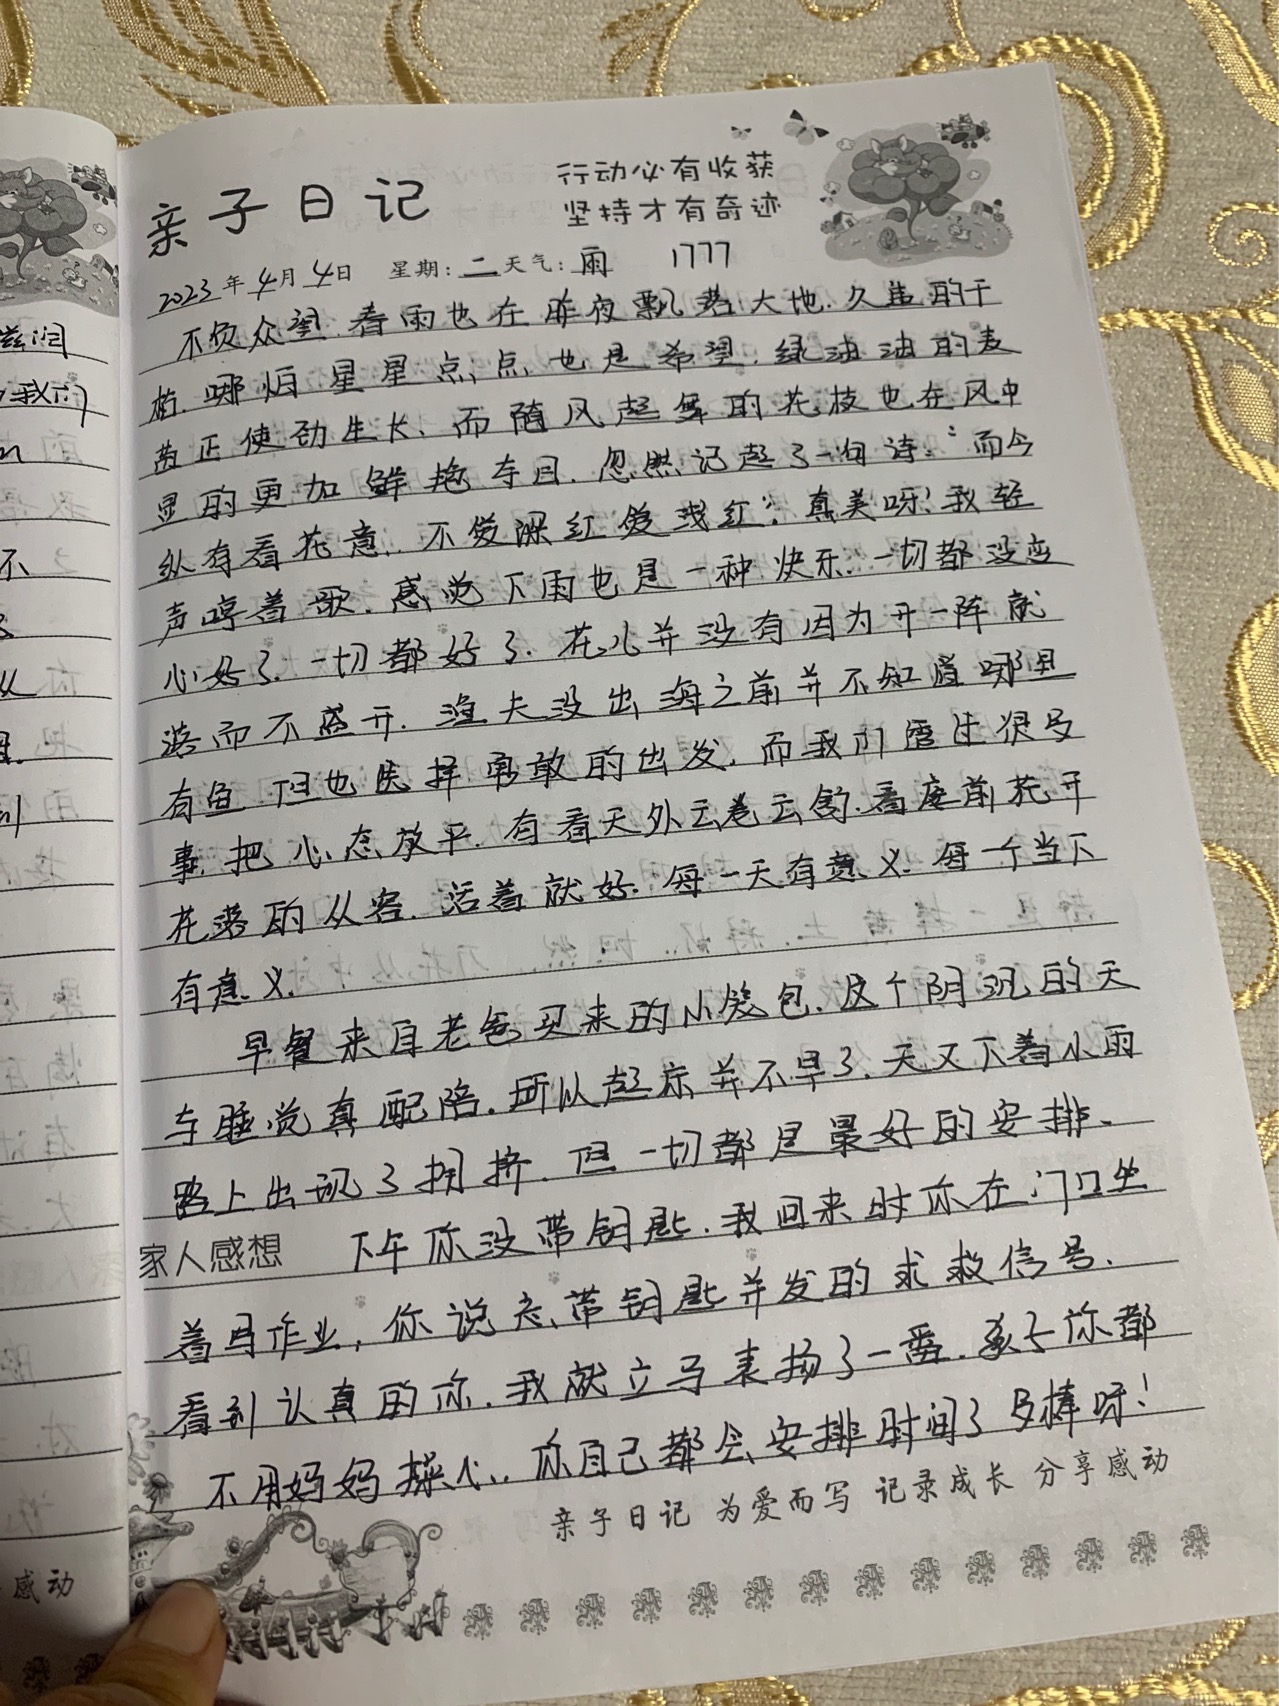 亲子日记
行动必有收获
坚持才有奇迹
2023年4月4日 星期:二天气:雨 1777
不负众望.春雨也在昨夜飘落大地.久违的干
枯.哪怕星星点点也是希望.绿油油的麦
苗正使劲生长、而随风起舞的花枝也在风中
显的更加鲜艳夺目.忽然记起了一句诗:"而今
纵有看花意.不爱深红爱浅红".真美呀!我轻
声哼着歌.感觉下雨也是一种快乐.一切都没变
心好了.一切都好了.花儿并没有因为开一阵就
落而不盛开.渔夫没出海之前并不知道哪里
有鱼.但也选择勇敢的出发.而我们历往很多
事.把心态放平.有看天外云卷云舒.看庭前花开
花落的从容.活着就好.每一天有意义.每一个当下
有意义.
早餐来自老爸买来的小笼包.这个阴沉的天
与睡觉真配陪.所以起床并不早了.天又下着小雨
路上出现了拥挤.但一切都是最好的安排.
家人感想 下午你没带钥匙.我回来时你在门口坐
着写作业,你说忘带钥匙并发的求救信号.
看到认真的你.我就立马表扬了一番.孩子你都
不用妈妈操心..你自己都会安排时间了多棒呀!
亲子日记 为爱而写 记录成长 分享感动
滋润
我们
不
从
感动